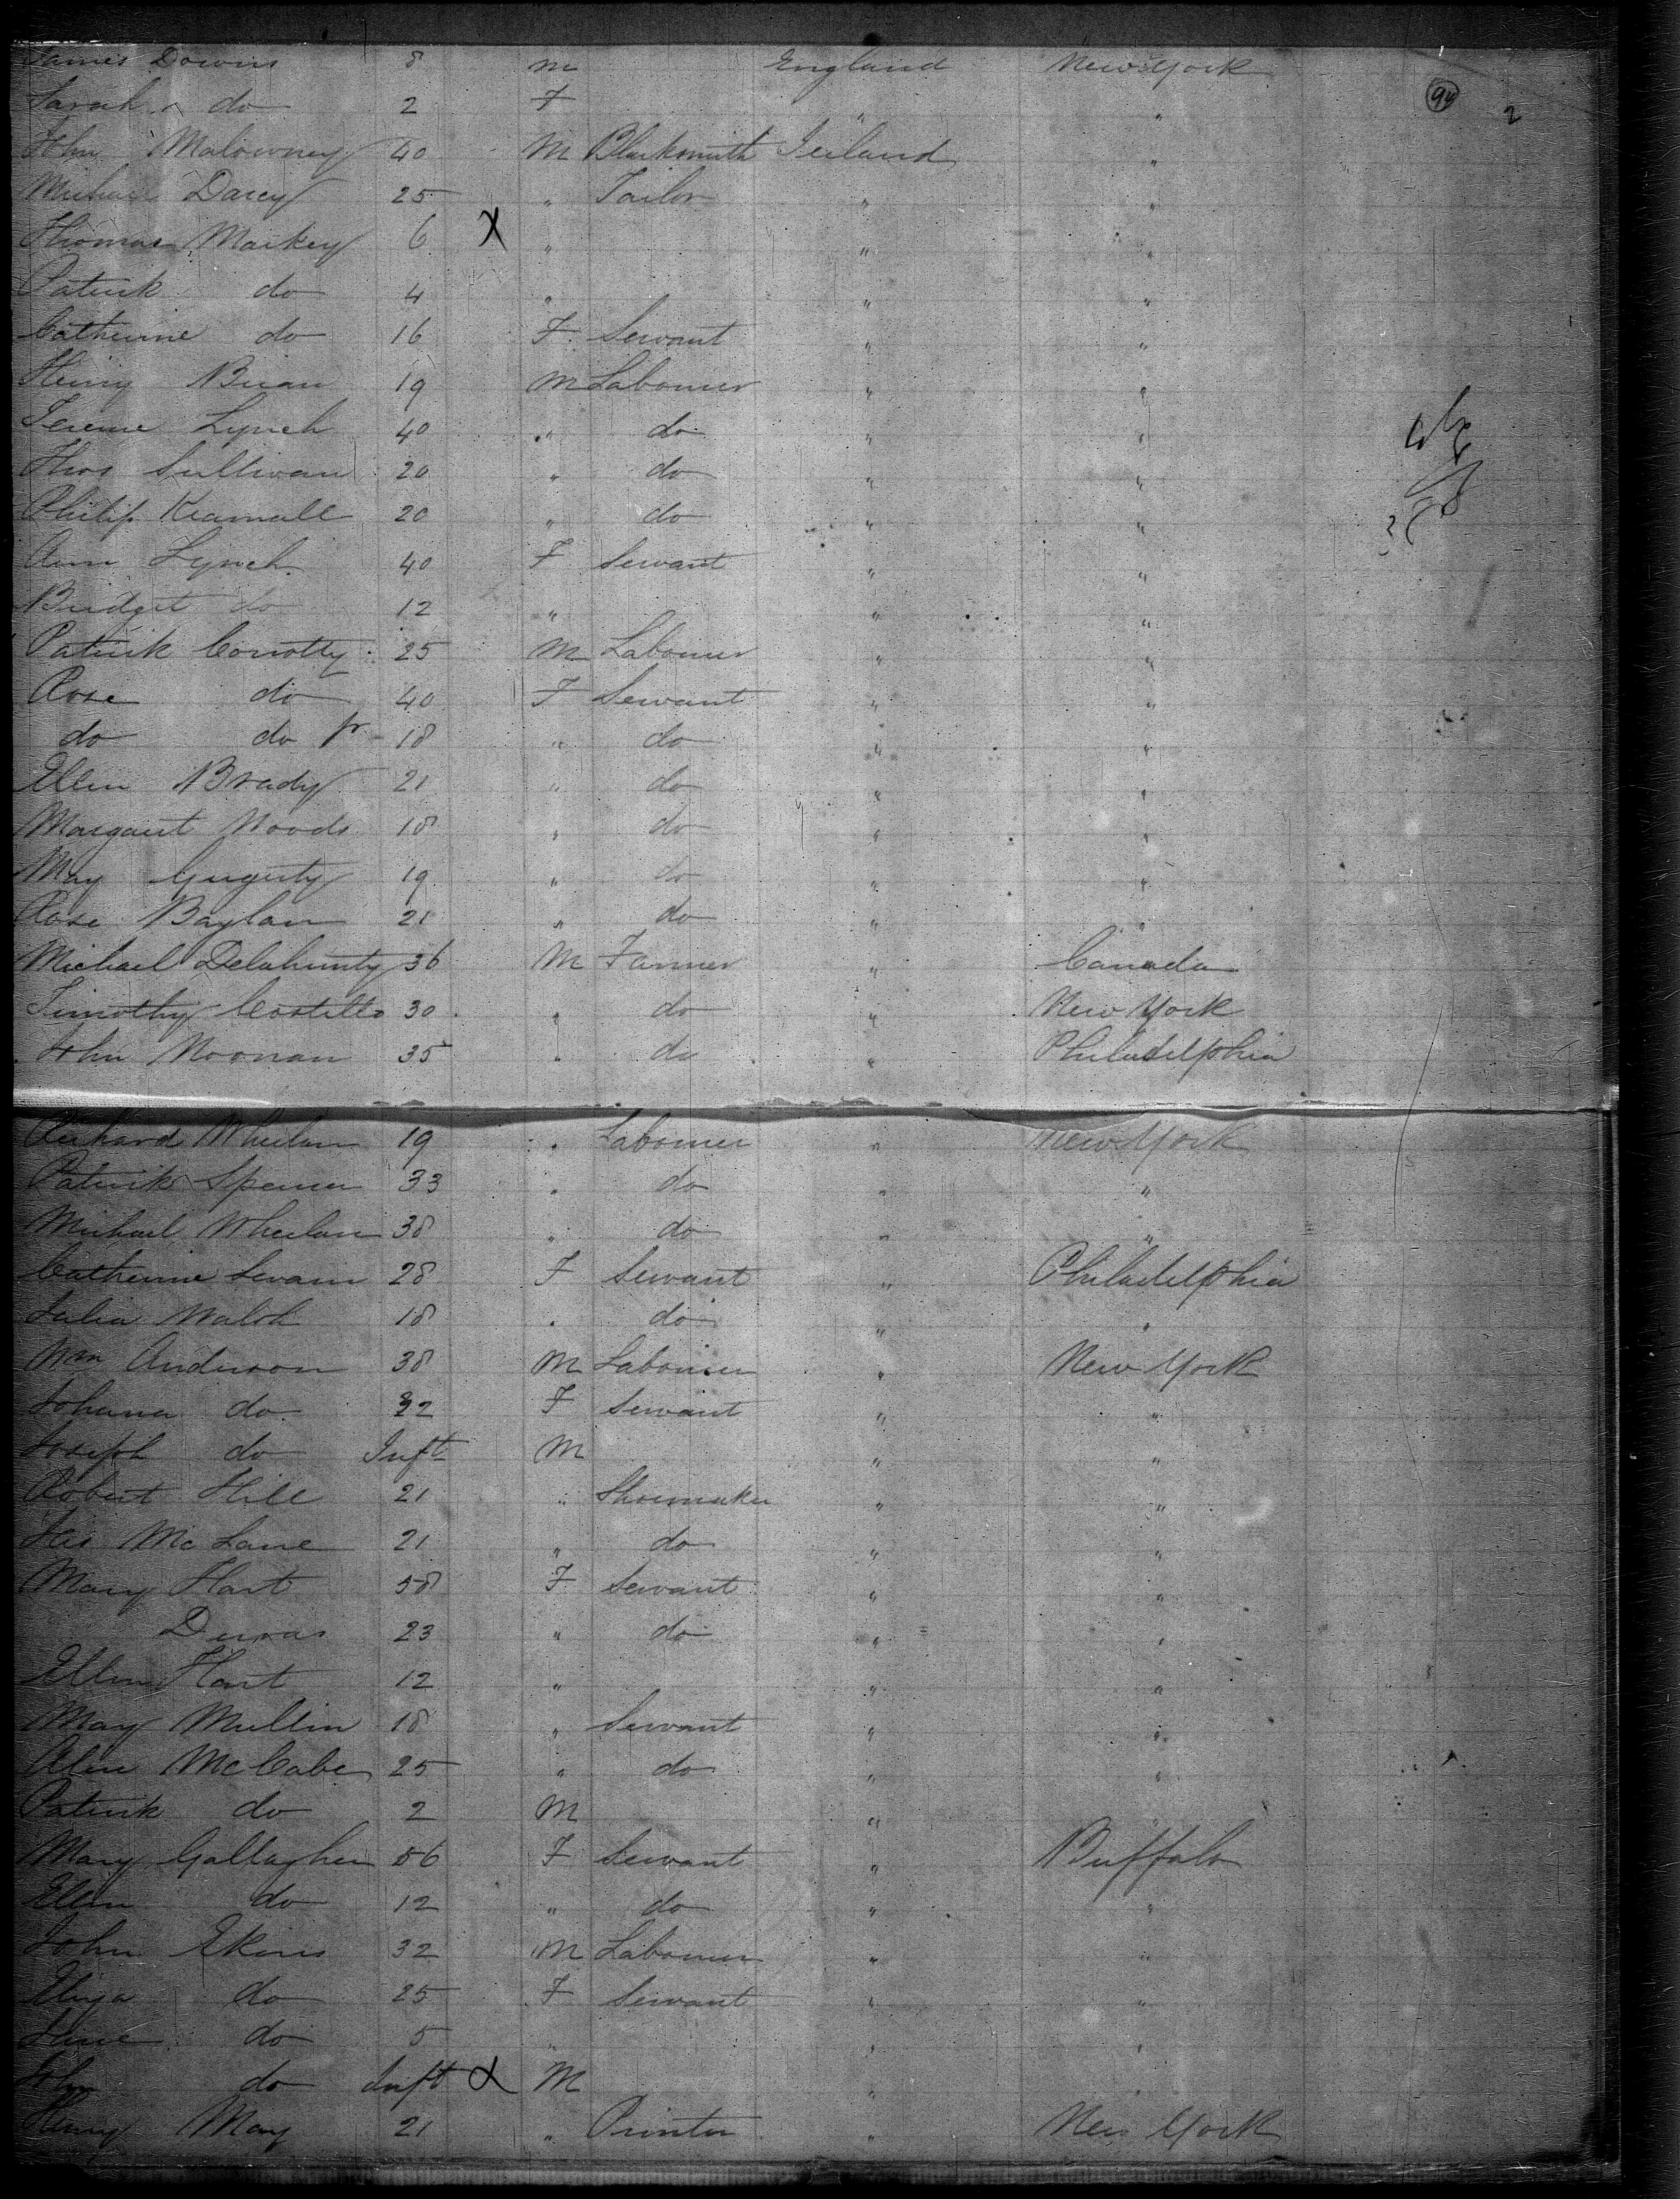 James Downs 8 M England New York
Sarah do 2 F " "
94 2
John Malowney 40 M Blacksmith Ireland "
Michael Darcy 25 " Tailor " "
Thomas Markey 6 X " " "
Patrick do 4 " " "
Catherine do 16 F Servant " "
Henry Brian 19 M Labourer " "
Terence Lynch 40 " do " "
Thos Sullivan 20 " do " "
Philip 20 " do " "
Ann Lynch 40 F Servant " "
Bridget do 12 " " "
Patrick Conotty 25 M Labourer " "
Rose do 40 F Servant " "
do do Jr 18 " do " "
Ellen Brady 21 " do " "
Margaret Woods 18 " do " "
May 19 " do " "
Rose Baylan 21 " do " "
Michael Delahunty 36 M Farmer " Canada
Timothy Costello 30 " do " New York
John Noonan 35 " do " Philadelphia
Richard Whelan 19 " Labourer " New York
Patrick Spencer 33 " do " "
Michael Wheelan 38 " do " "
Catherine Swain 28 F Servant " Philadelphia
Julia Walsh 18 " do " "
Wm Anderson 38 M Labourer " New York
Johana do 32 F Servant " "
Joseph do Inft M " "
Robert Hill 21 " Shoemaker " "
Mc Lane 21 " do " "
Mary Hart 58 F Servant " "
23 " do " "
Ellen Hart 12 " " "
May Mullin 18 " Servant " "
McCabe 25 " do " "
Patrick do 2 M " "
Mary Gallagher 56 F Servant " Buffalo
Ellen do 12 " do " "
John Ekins 32 M Labourer " "
Eliza do 25 F Servant " "
Jane do 5 " " "
John do Inft X M " "
Henry May 21 " Printer " New York